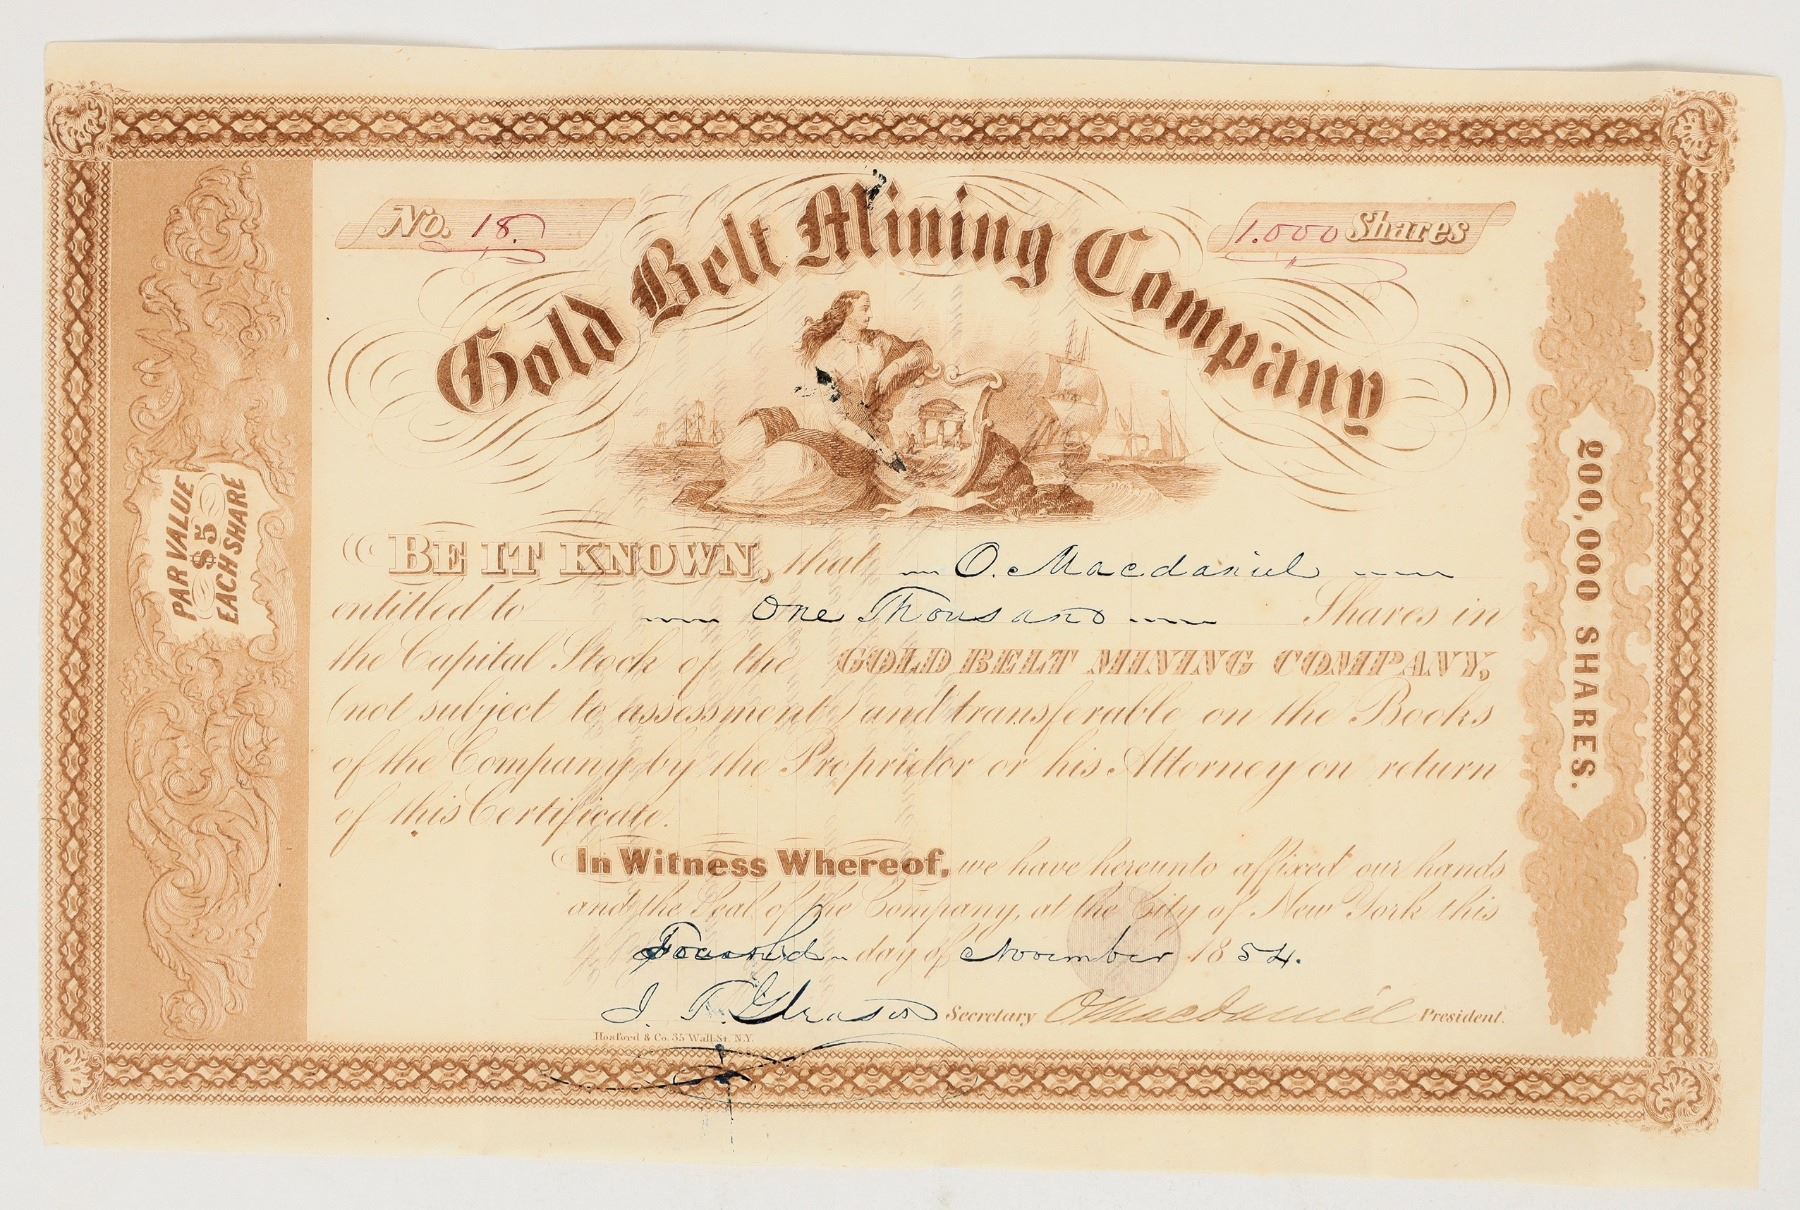 No. 18.
1.000 Shares
Gold Belt Mining Company
PAR VALUE
$5
EACH SHARE
200,000 SHARES.
BE IT KNOWN, that O. Macdaniel
entitled to One Thousand Shares in
the Capital Stock of the GOLD BELT MINING COMPANY,
(not subject to assessment) and transferable on the Books
of the Company by the Proprietor or his Attorney on return
of this Certificate.
In Witness Whereof, we have hereunto affixed our hands
and the Seal of the Company, at the City of New York this
day of November 1854.
J. F. Secretary O Macdaniel President.
Hosford & Co. 35 Wall St. N.Y.